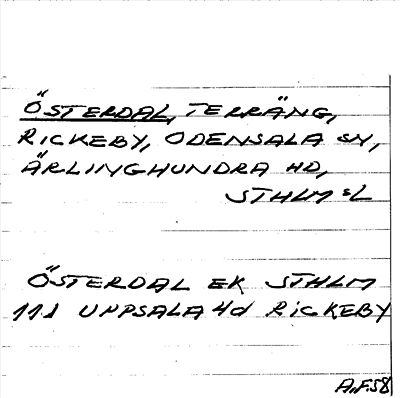 ÖSTERDAL, TERRÄNG,
RICKEBY, ODENSALA SN,
ÄRLINGHUNDRA HD,
STHLM SL
ÖSTERDAL EK STHLM
111 UPPSALA 4d RICKEBY
A.F.58